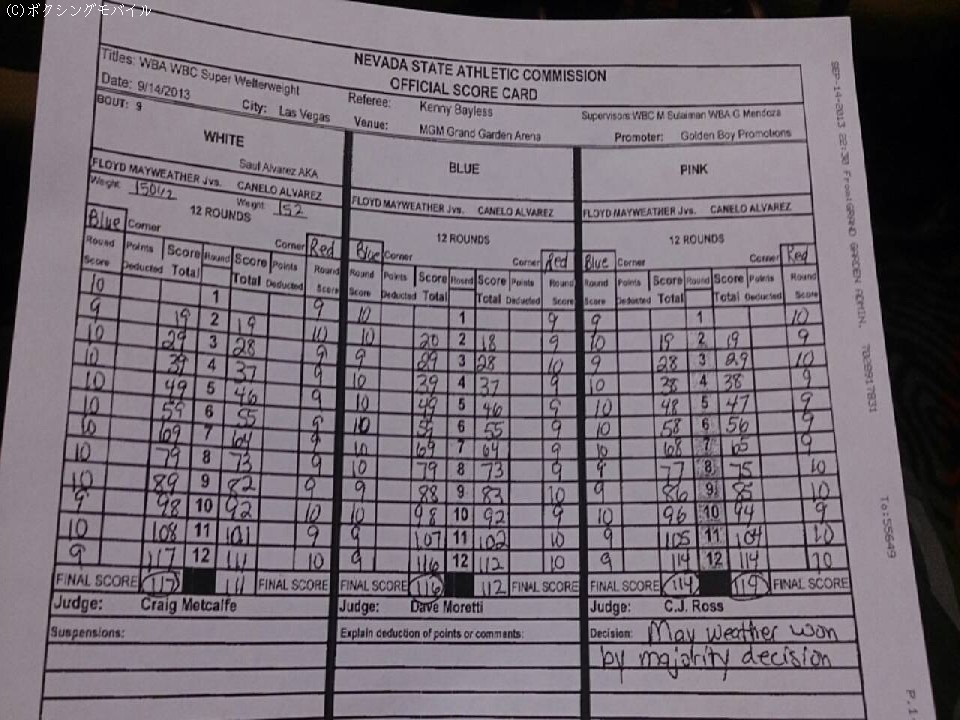 (C)ボクシングモバイル
NEVADA STATE ATHLETIC COMMISSION
OFFICIAL SCORE CARD
Titles: WBA WBC Super Welterweight
Date: 9/14/2013 City: Las Vegas
Referee: Kenny Bayless
Venue: MGM Grand Garden Arena
Supervisors: WBC M Sulaiman WBA G Mendoza
Promoter: Golden Boy Promotions
BOUT: 9
WHITE
Saul Alvarez AKA
FLOYD MAYWEATHER Jvs. CANELO ALVAREZ
Weight 150 1/2 Weight 152
12 ROUNDS
Blue Corner Corner Red
Round Score Points Deducted Score Total Round Score Total Points Deducted Round Score
10 1 9
9 19 2 19 10
10 29 3 28 9
10 39 4 37 9
10 49 5 46 9
10 59 6 55 9
10 69 7 64 9
10 79 8 73 9
10 89 9 82 9
9 98 10 92 10
10 108 11 101 9
9 117 12 111 10
FINAL SCORE 117 111 FINAL SCORE
Judge: Craig Metcalfe
Suspensions:
BLUE
FLOYD MAYWEATHER Jvs. CANELO ALVAREZ
12 ROUNDS
Blue Corner Corner Red
Round Score Points Deducted Score Total Round Score Total Points Deducted Round Score
10 1 9
10 20 2 18 9
9 29 3 28 10
10 39 4 37 9
10 49 5 46 9
10 59 6 55 9
10 69 7 64 9
10 79 8 73 9
9 88 9 83 10
10 98 10 92 9
9 107 11 102 10
9 116 12 112 10
FINAL SCORE 116 112 FINAL SCORE
Judge: Dave Moretti
Explain deduction of points or comments:
PINK
FLOYD MAYWEATHER Jvs. CANELO ALVAREZ
12 ROUNDS
Blue Corner Corner Red
Round Score Points Deducted Score Total Round Score Total Points Deducted Round Score
9 1 10
10 19 2 19 9
9 28 3 29 10
10 38 4 38 9
10 48 5 47 9
10 58 6 56 9
10 68 7 65 9
9 77 8 75 10
9 86 9 85 10
10 96 10 94 9
9 105 11 104 10
9 114 12 114 10
FINAL SCORE 114 114 FINAL SCORE
Judge: C.J. Ross
Decision: Mayweather won
by majority decision
SEP-14-2013 22:30 From:GRAND GARDEN ADMIN. 7028917831
To:55649
P.1